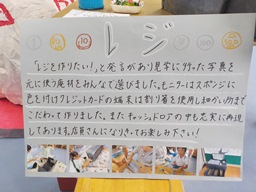 レジ
10
「レジを作りたい!」と発言があり見学に行った写真を
元に使う廃材をみんなで選びました。モニターはスポンジに
色を付けクレジットカードの端末は割り箸を使用し細かい所まで
こだわって作りました。またキャッシュドロアの中も忠実に再現
してあります。店員さんになりきってお楽しみ下さい!